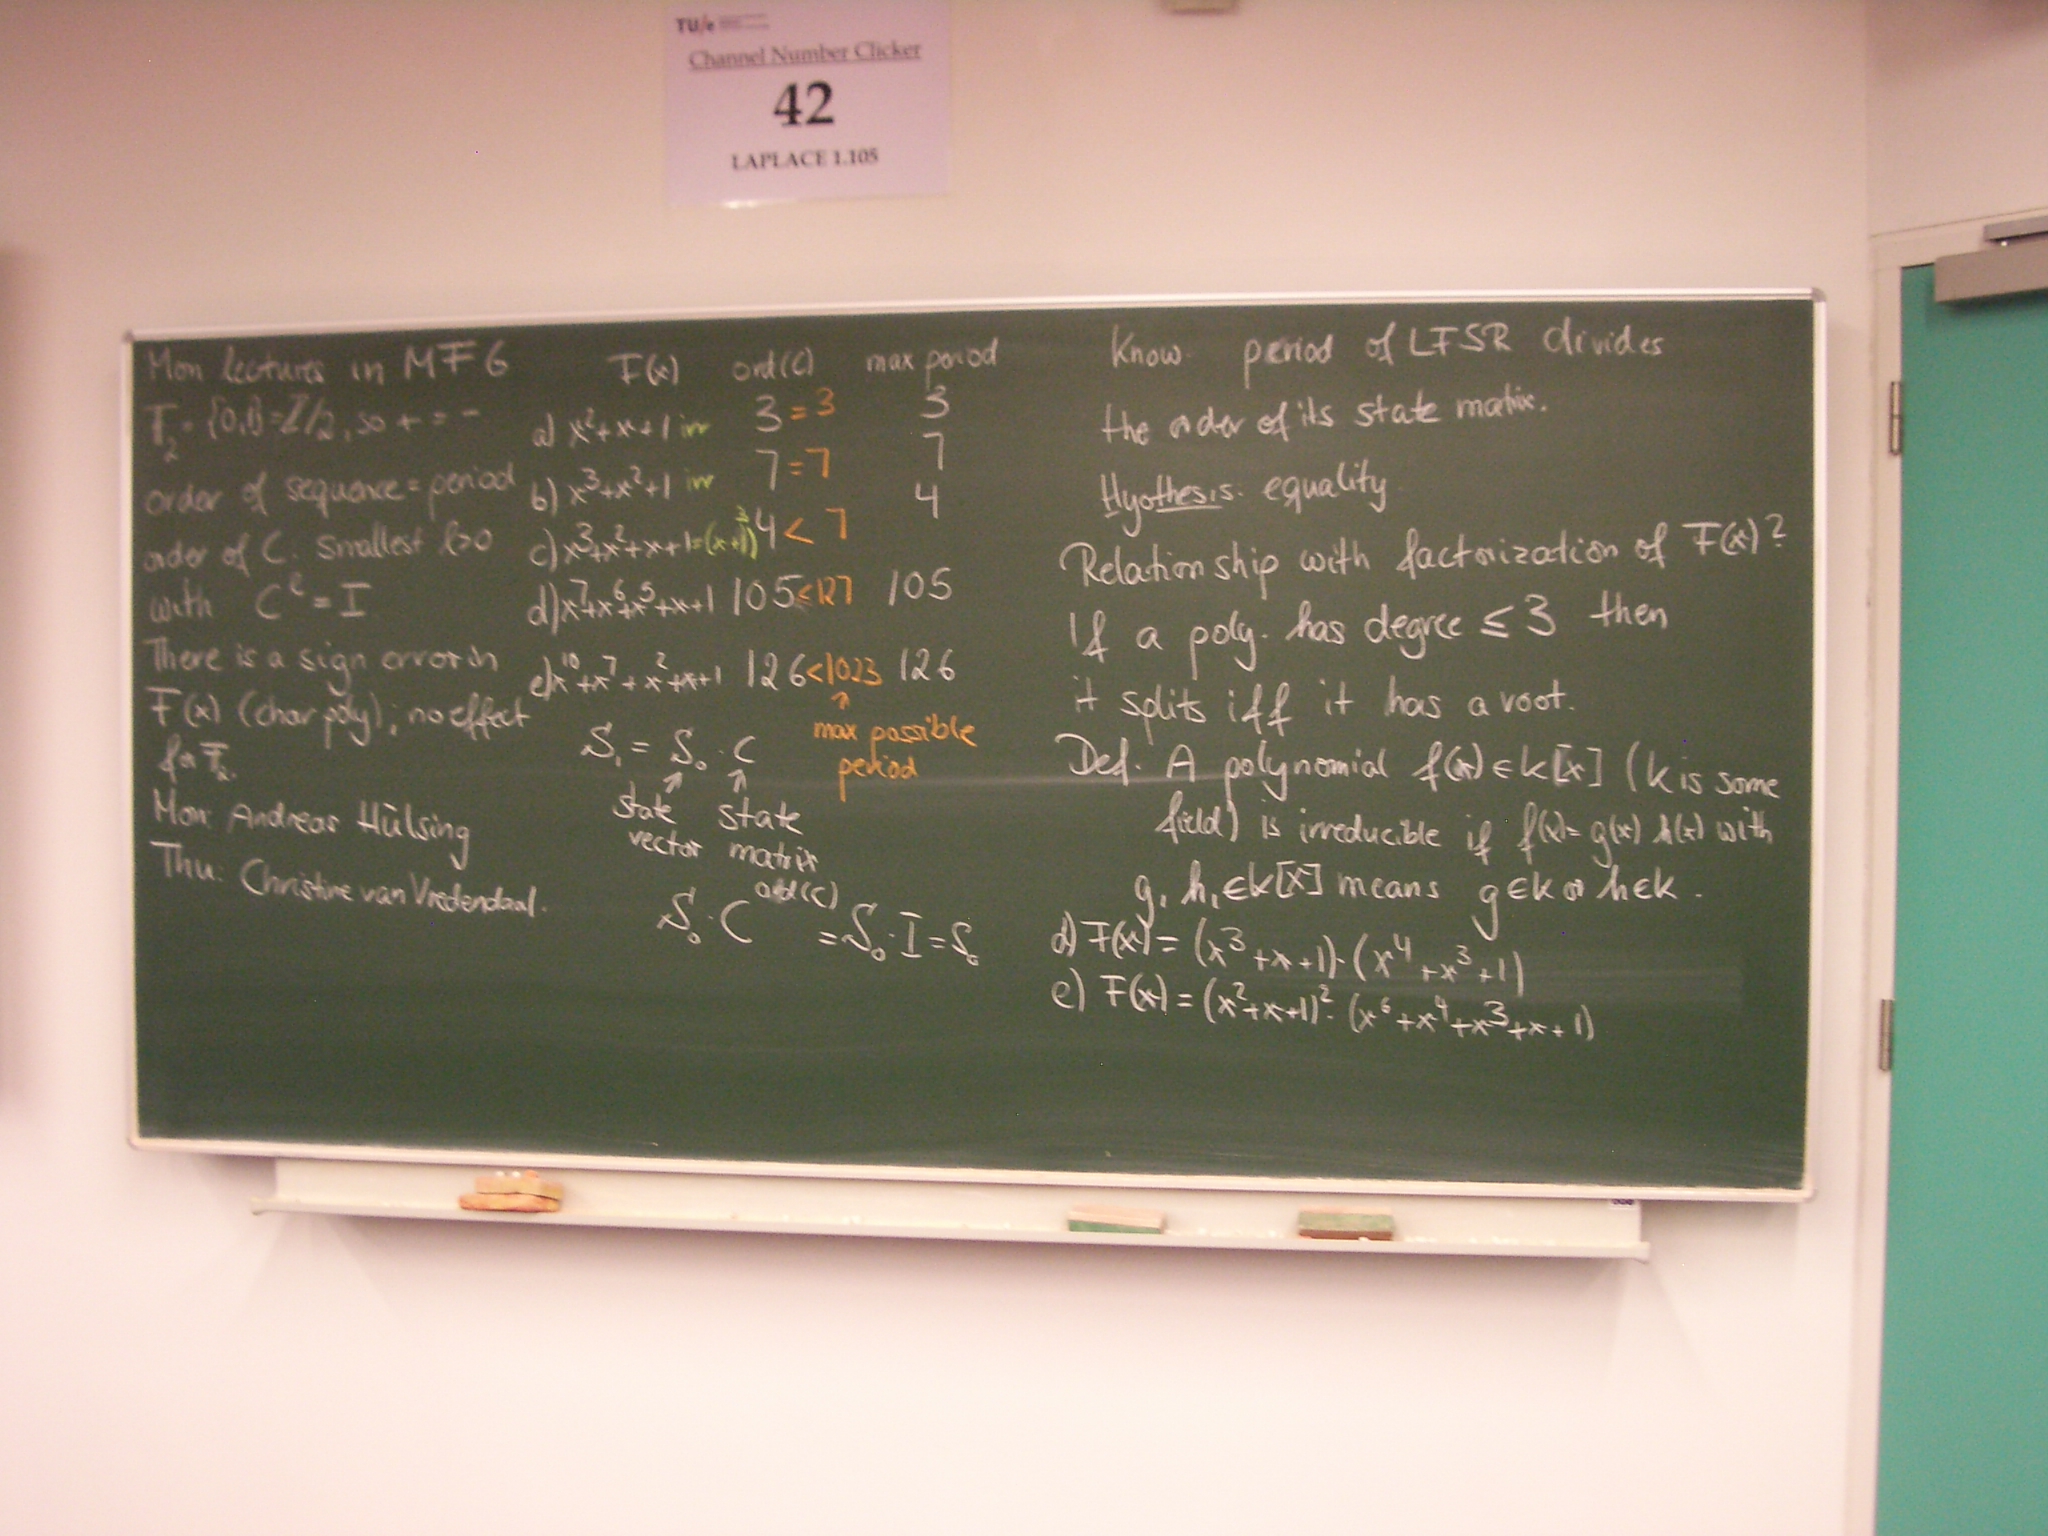 TU/e
Channel Number Clicker
42
LAPLACE 1.105
Mon lectures in MF6
F₂ = {0,1} = Z/2, so + = -
order of sequence = period
order of C. smallest l>0
with C^l = I
There is a sign error in
F(x) (char poly); no effect
for F₂.
Mon: Andreas Hülsing
Thu: Christine van Vredendaal.
F(x) ord(C) max period
a) x²+x+1 irr 3 = 3 3
b) x³+x²+1 irr 7 = 7 7
c) x³+x²+x+1=(x+1)³ 4 < 7 4
d) x⁷+x⁶+x⁵+x+1 105 < 127 105
e) x¹⁰+x⁷+x²+x+1 126 < 1023 126
↑
max possible
period
S₁ = S₀ · C
↗ ↑
state state
vector matrix
S₀ · C^ord(C) = S₀ · I = S₀
Know. period of LFSR divides
the order of its state matrix.
Hyothesis. equality.
Relationship with factorization of F(x)?
If a poly. has degree ≤ 3 then
it splits iff it has a root.
Def. A polynomial f(x) ∈ k[x] (k is some
field) is irreducible if f(x) = g(x) h(x) with
g, h, ∈ k[x] means g ∈ k or h ∈ k.
d) F(x) = (x³+x+1)·(x⁴+x³+1)
e) F(x) = (x²+x+1)²·(x⁶+x⁴+x³+x+1)